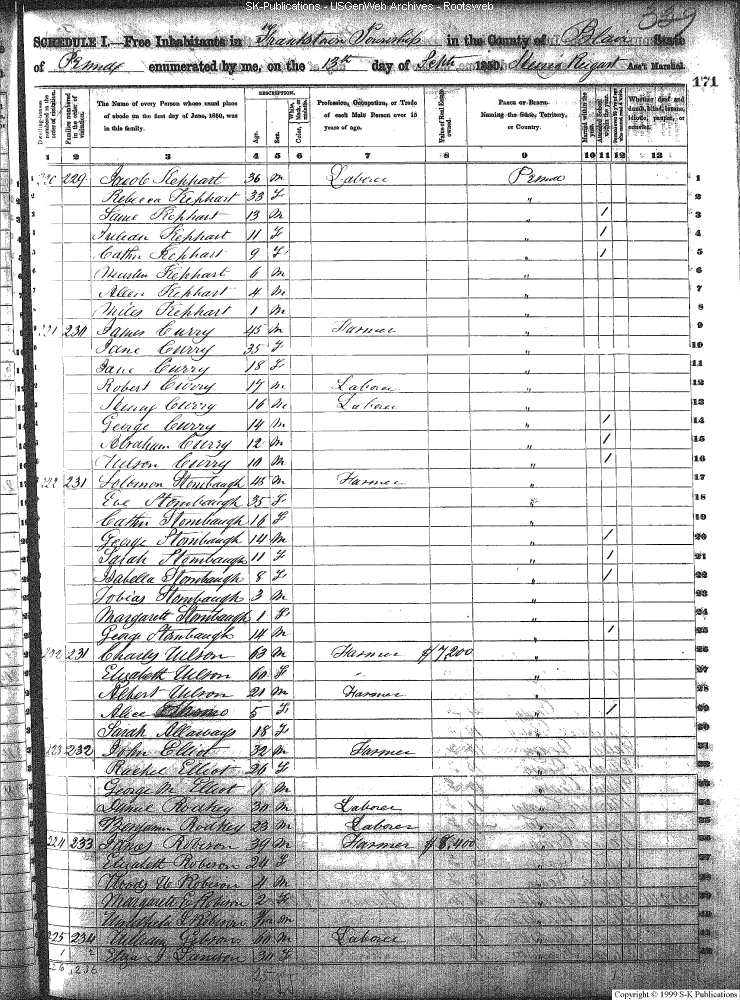 SK-Publications - USGenWeb Archives - Rootsweb
339
SCHEDULE I.—Free Inhabitants in Frankstown Township in the County of Blair State
of Penna enumerated by me, on the 13th day of Sept 1850. Ass't Marshal.
171
Dwelling-houses numbered in the order of visitation.
Families numbered in the order of visitation.
The Name of every Person whose usual place of abode on the first day of June, 1850, was in this family.
DESCRIPTION.
Age.
Sex.
White, black, or mulatto.
Color,
Profession, Occupation, or Trade of each Male Person over 15 years of age.
Value of Real Estate owned.
PLACE OF BIRTH. Naming the State, Territory, or Country.
Married within the year.
Attended School within the year.
Whether deaf and dumb, blind, insane, idiotic, pauper, or convict.
1 2 3 4 5 6 7 8 9 10 11 12 13
229 Jacob Kephart 36 m Laborer Penna 1
Rebecca Kephart 33 F " 2
Kephart 13 m " / 3
Kephart 11 F " / 4
Cathn Kephart 9 F " / 5
Kephart 6 m " 6
Allen Kephart 4 m " 7
Miles Kephart 1 m " 8
221 230 James Curry 45 m Farmer " 9
Jane Curry 35 F " 10
Jane Curry 18 F " 11
Robert Curry 17 m Laborer " 12
Henry Curry 16 m Laborer " 13
George Curry 14 m " / 14
Abraham Curry 12 m " / 15
Wilson Curry 10 m " / 16
222 231 Solomon Stombaugh 45 m Farmer " 17
Eve Stombaugh 35 F " 18
Cathn Stombaugh 16 F " 19
George Stombaugh 14 m " / 20
Sarah Stombaugh 11 F " / 21
Isabella Stombaugh 8 F " / 22
Tobias Stombaugh 3 m " 23
Margarett Stombaugh 1 F " 24
George Stombaugh 14 m " / 25
222 231 Charles Wilson 63 m Farmer $7,200 " 26
Elizabeth Wilson 60 F " 27
Albert Wilson 21 m Farmer " 28
Alice 5 F " / 29
Sarah Allaways 18 F " 30
223 232 John Elliot 32 m Farmer " 31
Rachel Elliot 26 F "
George M Elliot 1 m "
Rodkey 30 m Laborer "
Benjamin Rodkey 23 m Laborer "
224 233 James Robison 39 m Farmer $8,400 "
Elizabeth Robison 24 F "
Woods W Robison 4 m "
Margarett E Robison 2 F "
Robison m "
225 234 William Gibson m Laborer "
Eliza J 30 F "
226 236
Copyright © 1999 S-K Publications